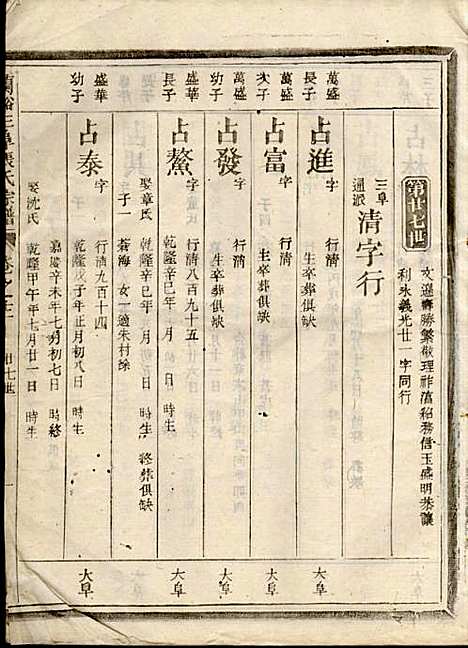 第廿七世
文選壽勝繁敬理祚
紹務信玉盛明恭讓
利永義光廿一字同行
三阜
通派
清字行
萬盛
長子
占進
字
行清
生卒葬俱缺
大阜
萬盛
次子
占富
字
行清
生卒葬俱缺
大阜
萬盛
幼子
占發
字
行清
生卒葬俱缺
大阜
盛華
長子
占鰲
字
行清八百九十五
乾隆辛巳年 月 日 時生
娶章氏 乾隆辛巳年 月 日 時生 終葬俱缺
子一 蒼海 女一適朱村徐
大阜
盛華
幼子
占泰
字
行清九百十四
乾隆戊子年正月初八日 時生
嘉慶辛未年七月初七日 時終
娶沈氏 乾隆甲午年七月廿一日 時生
大阜
氏宗譜
廿七世